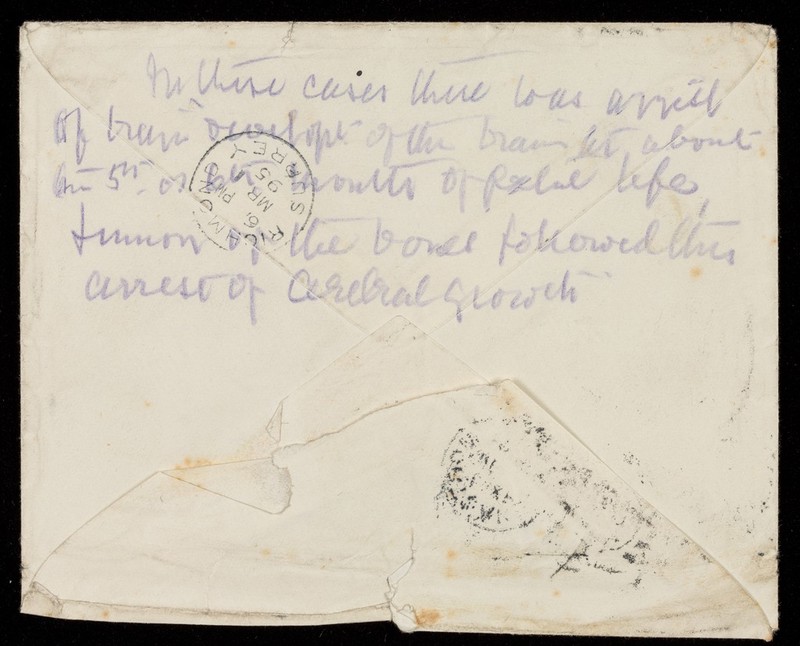 In these cases there was arrest
of brain developt of the brain at about
the 5th or 6th months of foetal life,
of the bones followed this
arrest of cerebral growth
RICHMOND
SURREY
PM
6
MR
95